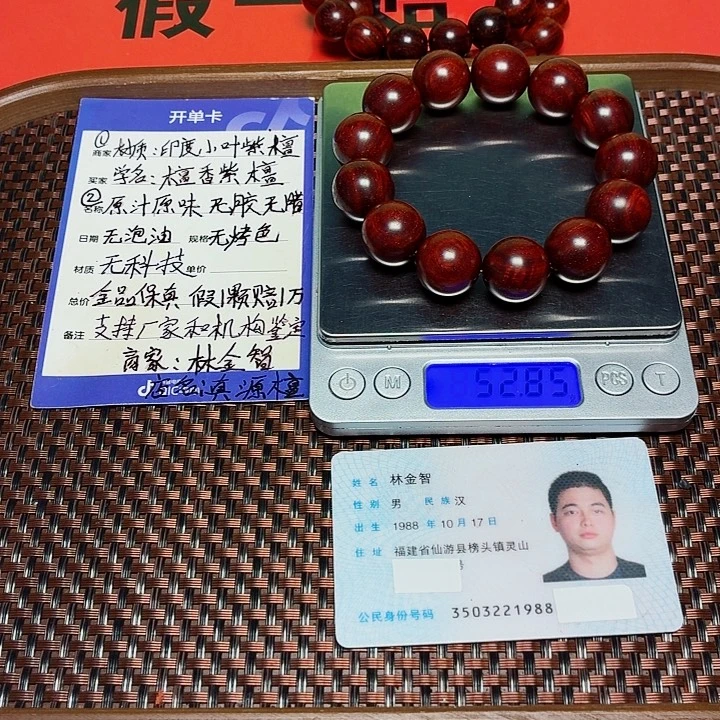 假一赔
开单卡
① 商家 材质:印度小叶紫檀
买家 学名:檀香紫檀
② 名称 原汁原味 无胶无腊
日期 无泡油 规格 无烤色
材质 无科技 单价
总价 全品保真 假1颗赔1万
备注 支持厂家和机构鉴定
商家:林金智
店名:滇源檀
M
52.85
PCS
T
姓名 林金智
性别 男 民族 汉
出生 1988 年 10 月 17 日
住址 福建省仙游县榜头镇灵山
号
公民身份号码 3503221988